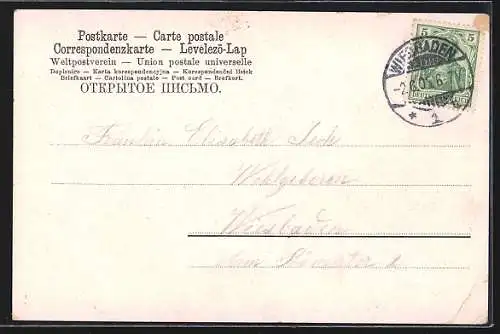 Postkarte — Carte postale
Correspondenzkarte — Levelező-Lap
Weltpostverein — Union postale universelle
Dopisnice — Karta korespondencyjna — Korespondenční lístek
Briefkaart — Cartolina postale — Post card — Brefkort.
ОТКРЫТОЕ ПИСЬМО.
5 5
WIESBADEN
* 1
Fräulein Elisabeth
Wohlgeboren
Wiesbaden